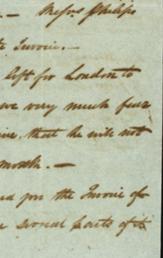 — Messrs. Philips
Invoice. —
left for London to
we very much fear
that he will not
month. —
you the Invoice of
several parts of it